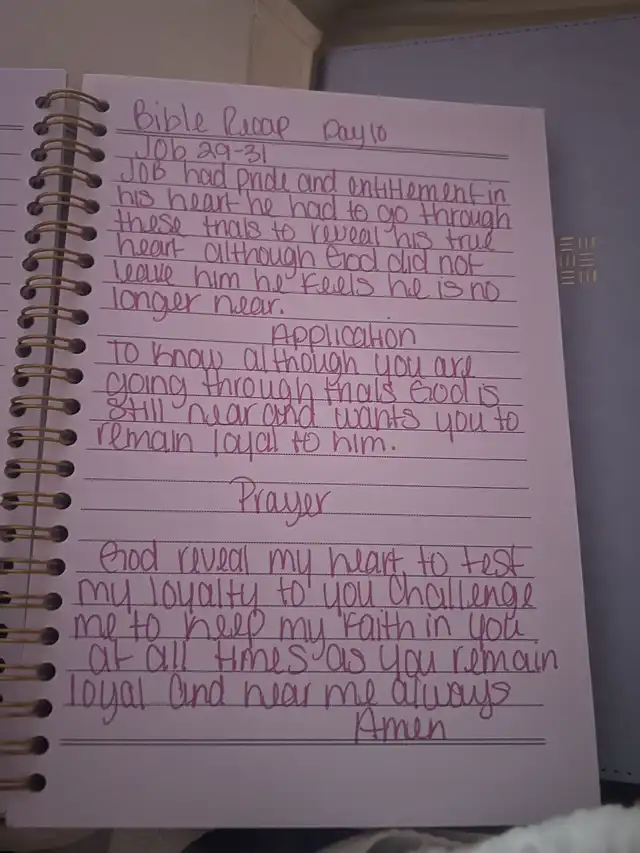 Bible Recap Day 10
Job 29-31
Job had pride and entitlement in
his heart he had to go through
these trials to reveal his true
heart although God did not
leave him he feels he is no
longer near.
Application
To know although you are
going through trials God is
still near and wants you to
remain loyal to him.
Prayer
God reveal my heart to test
my loyalty to you challenge
me to keep my faith in you
at all times as you remain
loyal and near me always
Amen